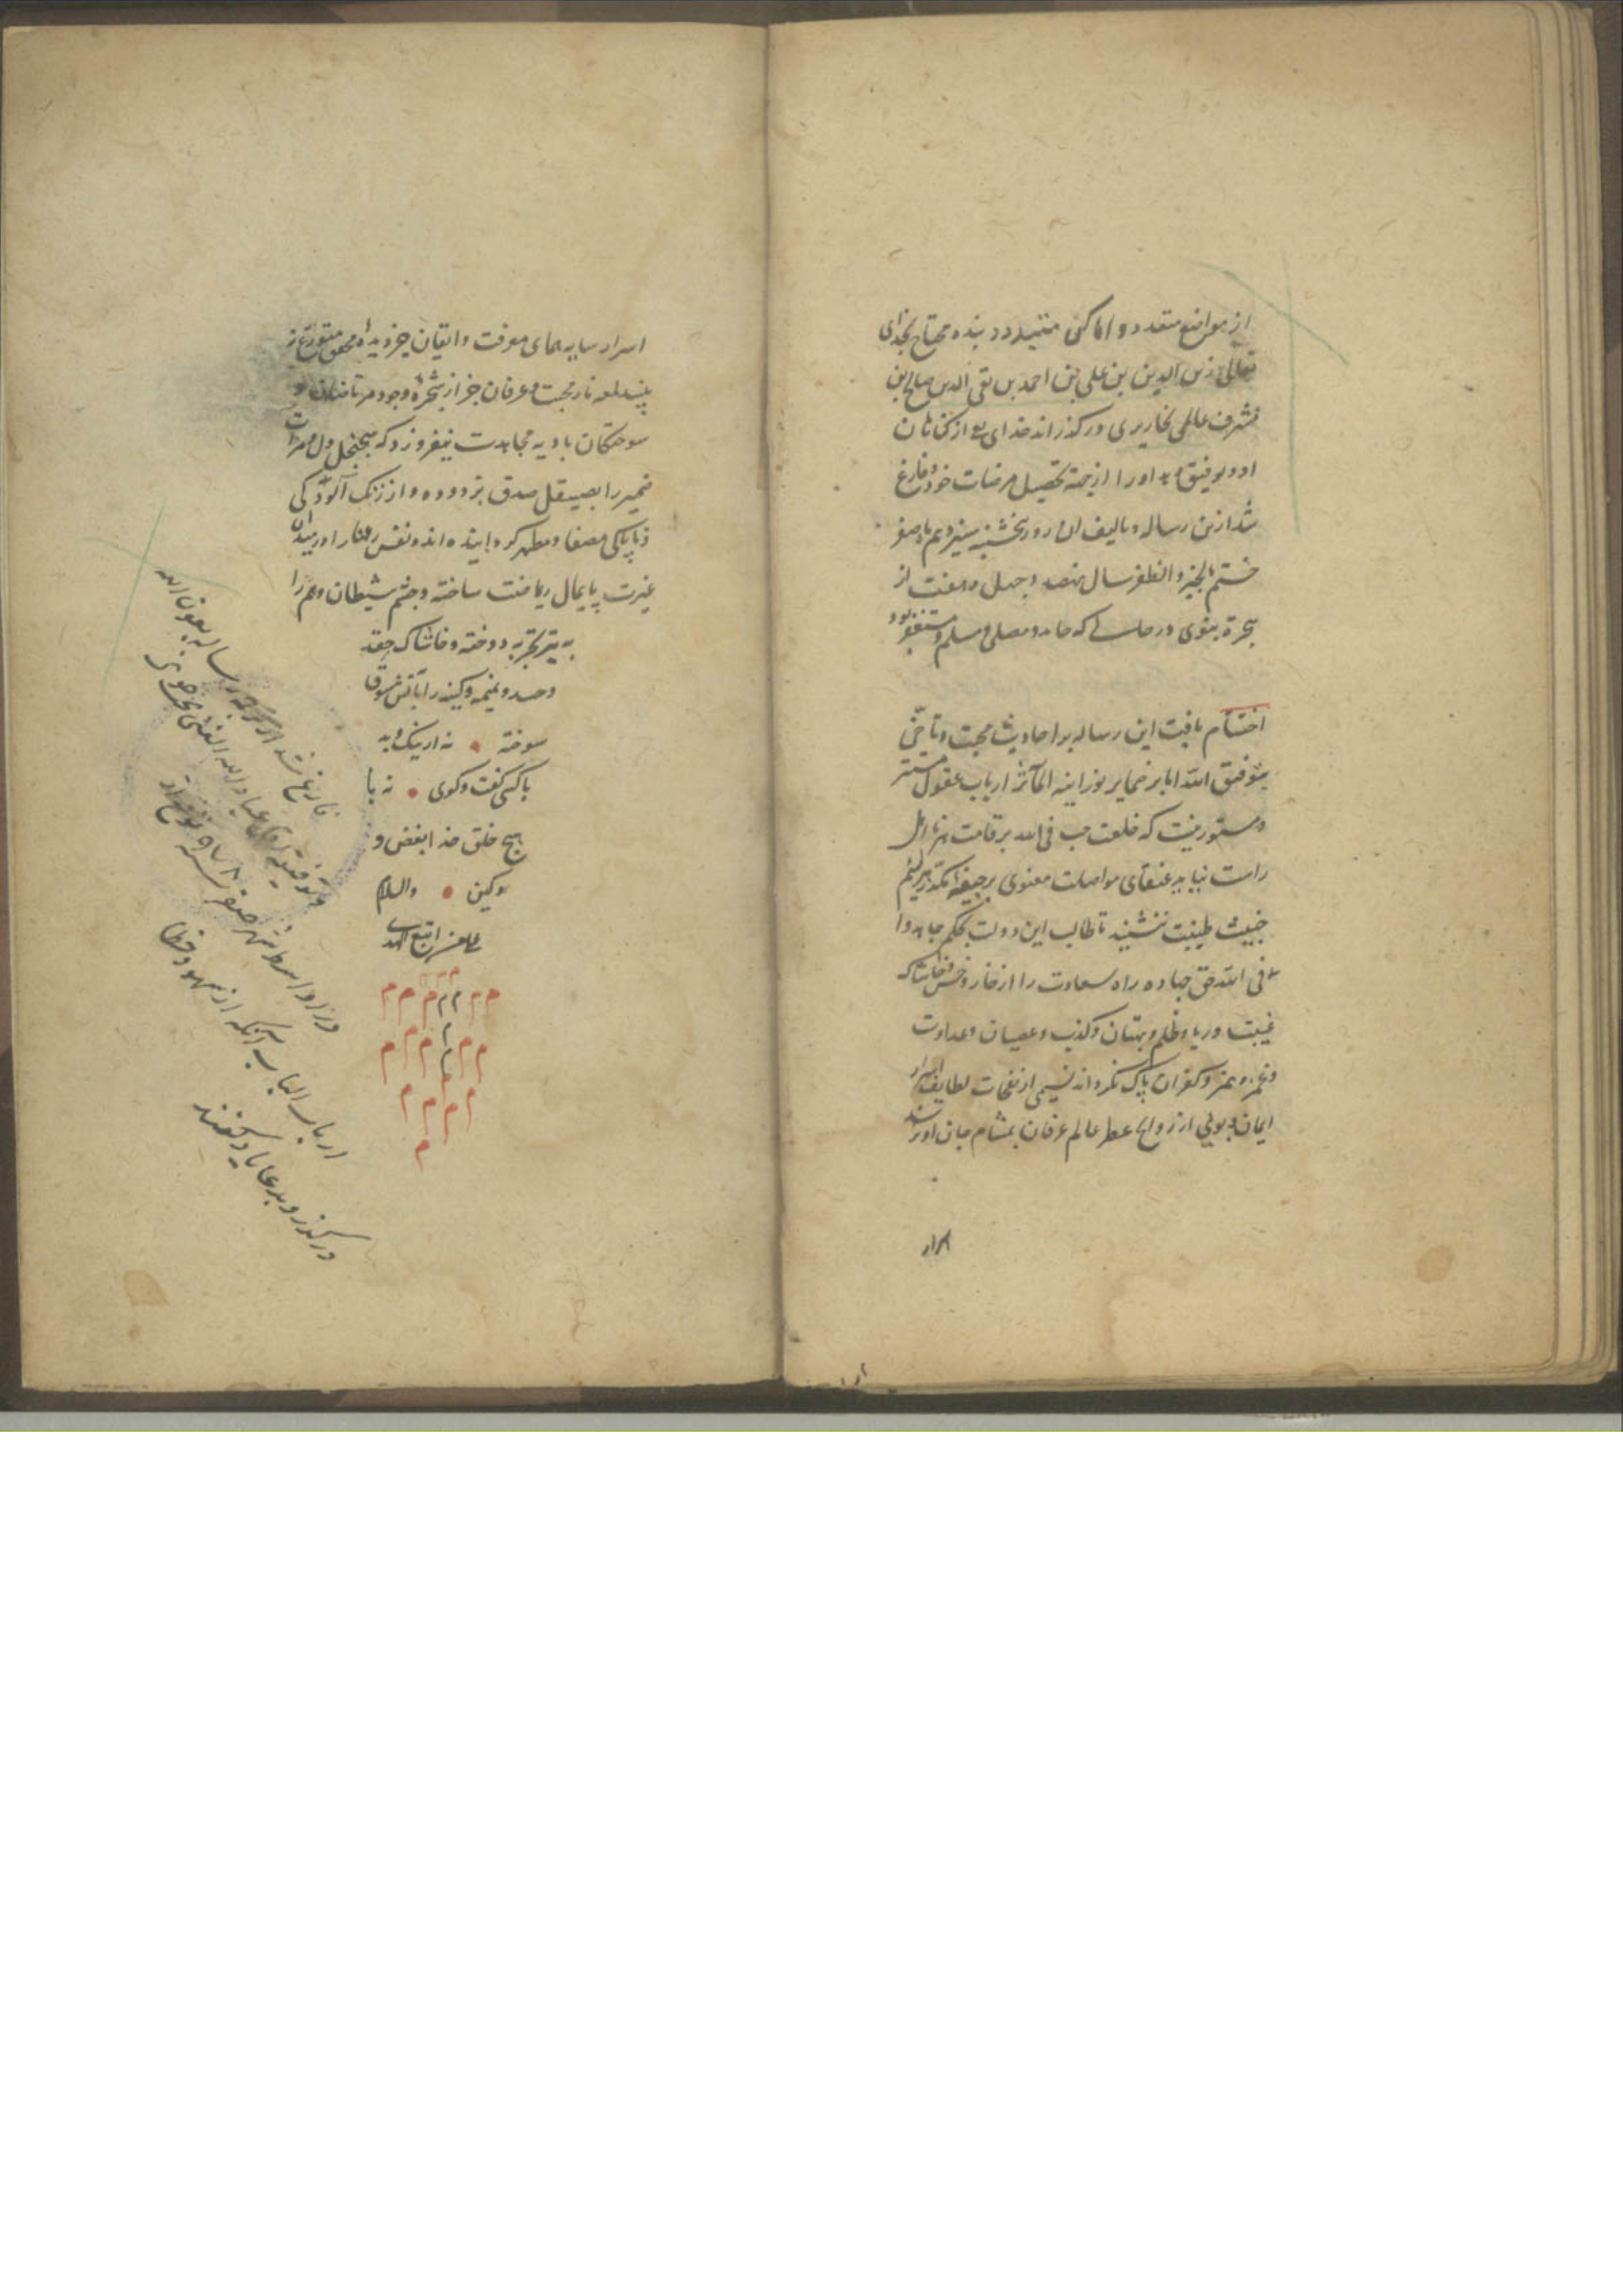 از مواضع متعدده و اماکن متبدده بنده محتاج بخدای
تعالی زین الدین بن علی بن احمد بن تقی الدین صالح بن
مشرف عاملی درکذراند خدای از کناهان
او و توفیق دهد او را از جهة تحصیل مرضات خود و فارغ
شد ازین رساله و تالیف ان روز پنجشنبه سیزدهم ماه صفر
ختم بالخیر و الظفر سال نهصد و چهل و هفت از
هجرة نبوی در حالی که حامد و مصلی و مسلم و مستغفر بود
اختتام یافت این رساله بر احادیث محبت و تآخی
بتوفیق الله اما بر ضمایر نورانیه المآثر ارباب عقول مستتر
و مستور نیست که خلعت حب فی الله بر قامت هر نااهل
راست نیاید عنقای مواصلت معنوی بر جیفهٔ هر لئیم
خبیث طینت ننشیند تا طالب این دولت بحکم جاهدوا
فی الله حق جهاده راه سعادت را از خار و خس و خاشاک
غیبت و ریا و ظلم و بهتان و کذب و عصیان و عداوت
و غمز و همز و کفران پاک نکرداند نسیمی از نفحات لطایف اسرار
ایمان و بویی از روایح عطر عالم عرفان بمشام جان او نرسد
اسرار
اسرار سایه همای معرفت و ایقان جز دیدهٔ محقق متورع نه
بیند لمعه نار محبت و عرفان جز از شجرهٔ وجود مرتاضان و
سوختکان بادیه مجاهدت نیفروزد که سجنجل دل و مرات
ضمیر را بصیقل صدق بزدوده و از زنک آلودکی
و ناپاکی مصفا و مطهر کردانیده اند و نفس را در میدان
غیرت پایمال ریاضت ساخته و چشم شیطان وهم را
به تیر تجربه دوخته و خاشاک حقد
و حسد و نمیمه و کینه را بآتش شوق
سوخته • نه از نیک و بد
با کسی کفت و کوی • نه با
هیچ خلق خدا بغض و
کین • والسلام
علی من اتبع الهدی
فارغ شد از رساله بعون الله
و توفیقه عباد الله الغنی
در اواسط شهر صفر سنه ۹۷۸
ارباب الباب آنکه از سهو و خطا
درکذرند و بدعا یاد کنند